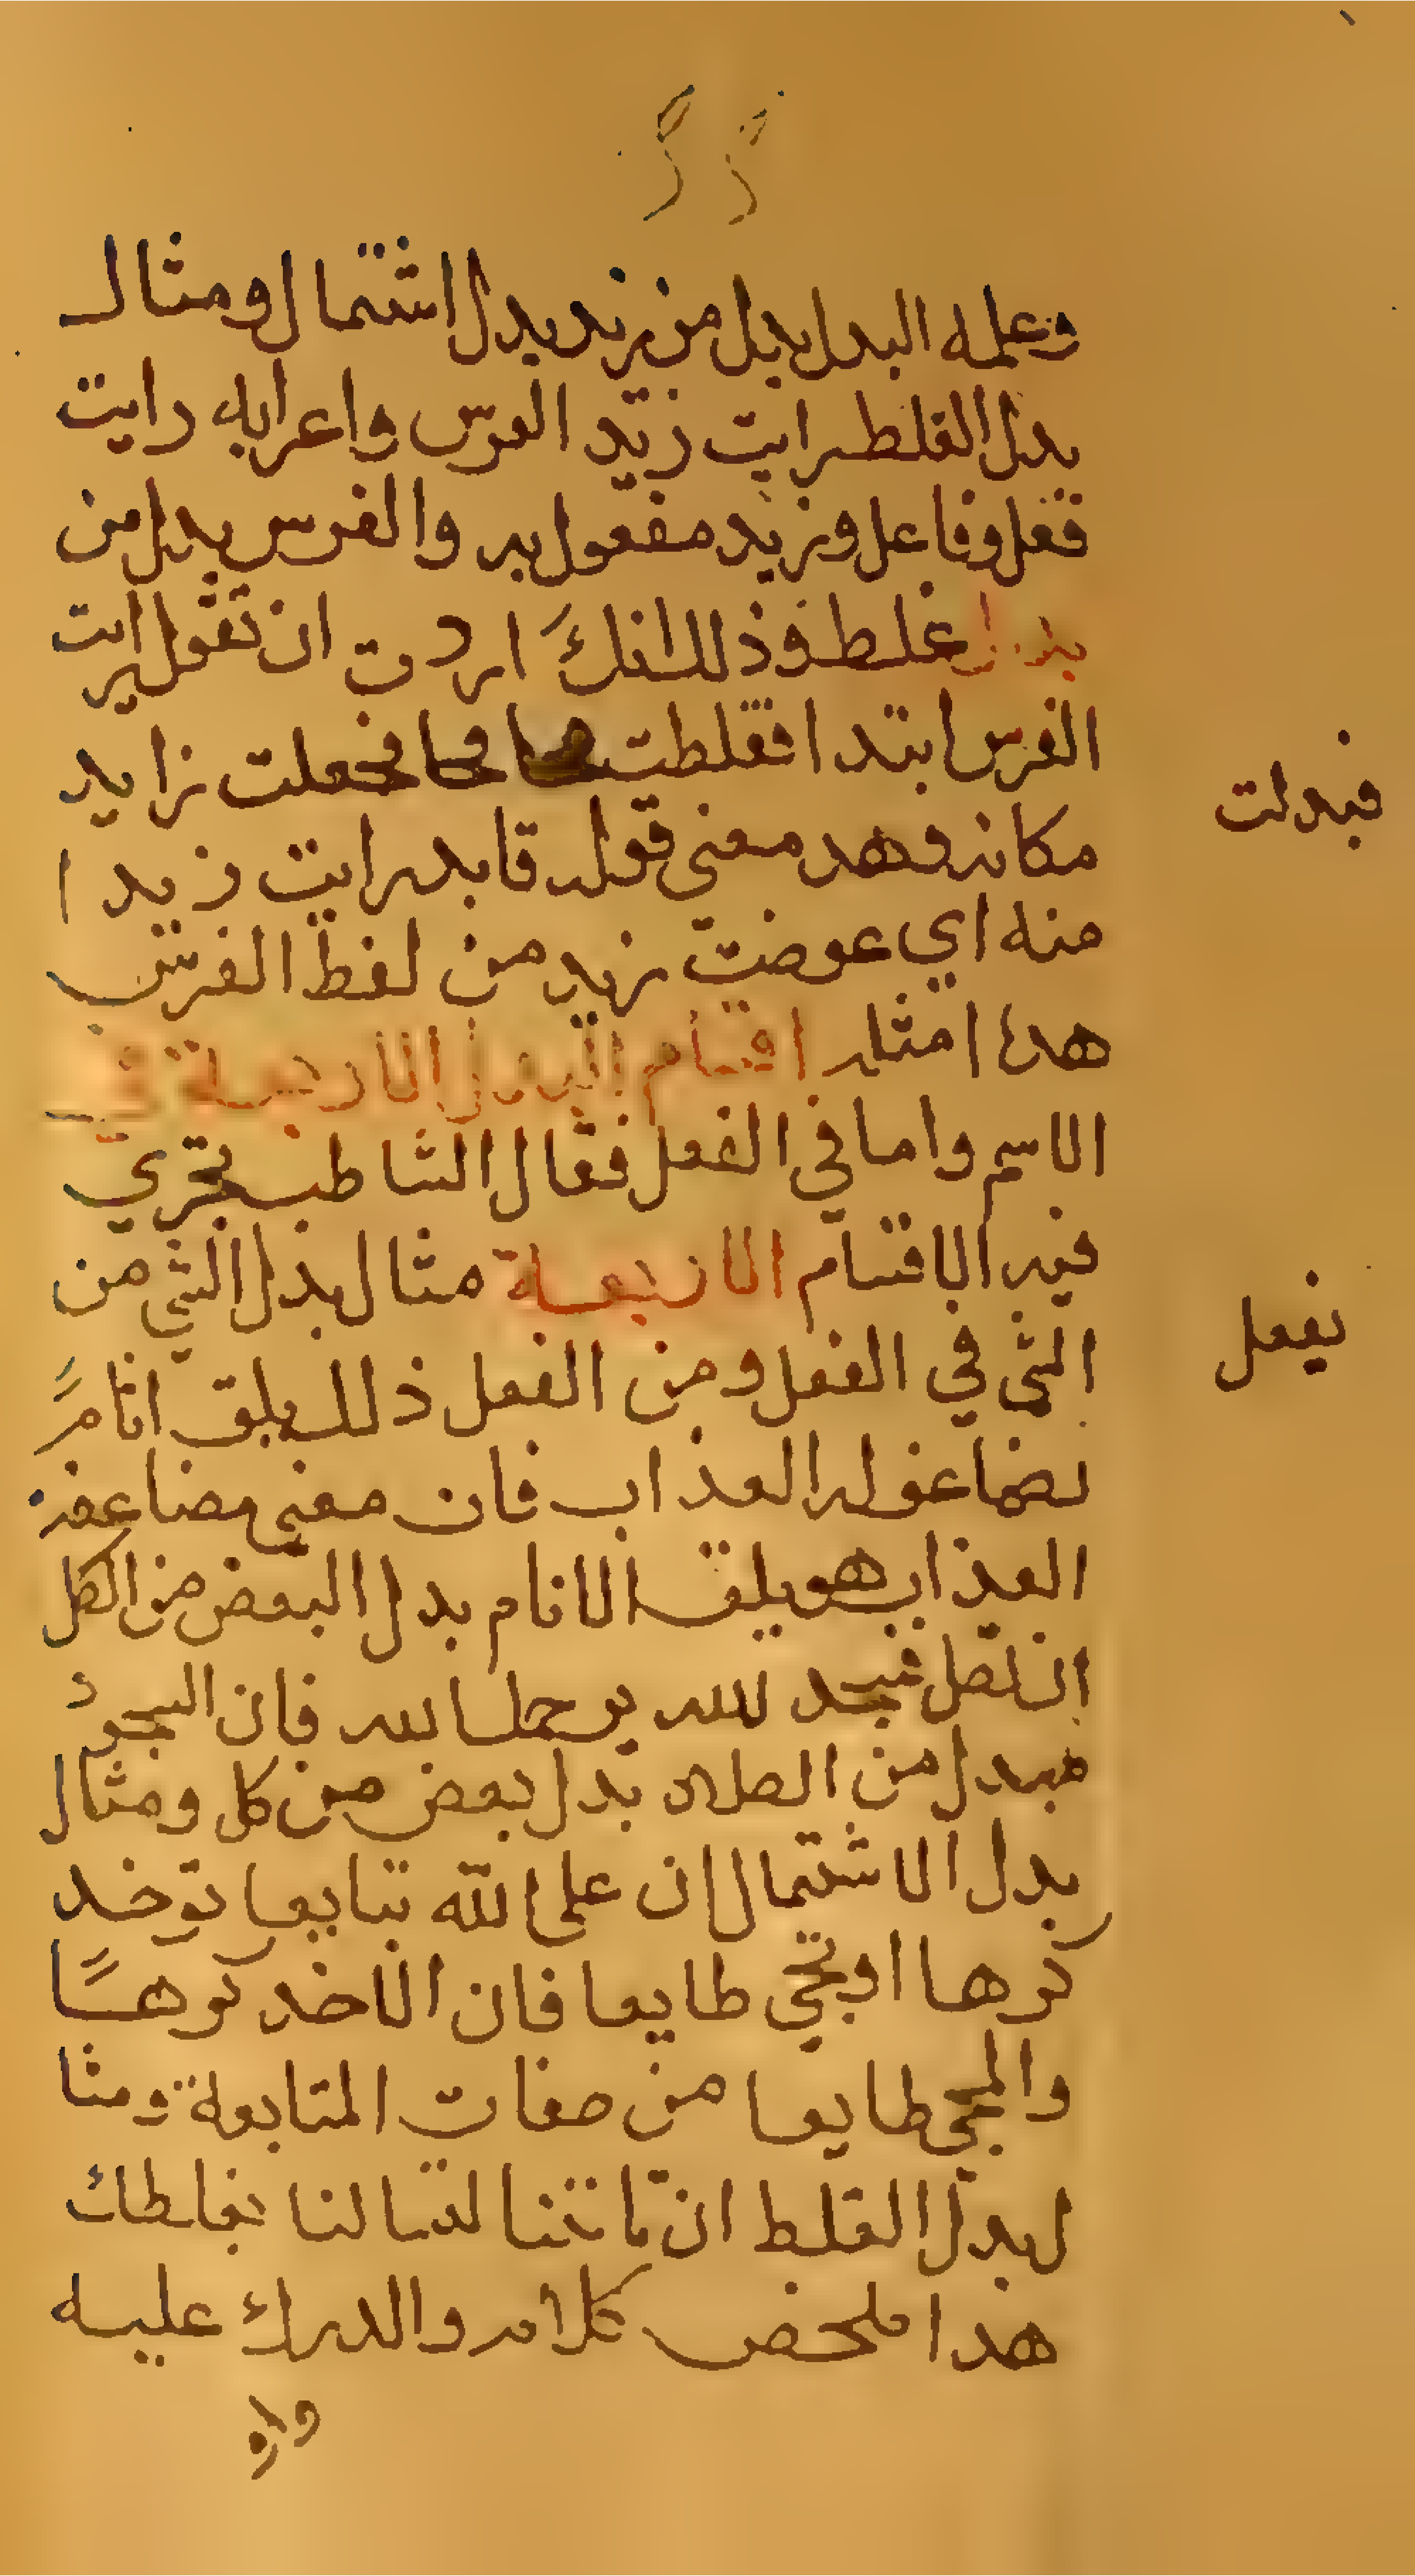 وعلمه البدل بدل من زيد بدل اشتمال ومثال
بدل الغلط رايت زيد الفرس واعرابه رايت
فعل وفاعل وزيد مفعول به والفرس بدل من
بدل غلط وذلك انكَ اردت ان تقول رايت
الفرس ابتدا فغلطت فجعلت زايد
مكانه وهد معني قوله فابدرايت زيد ا
منه اي عوضت زيد من لفظ الفرس
هدا امثله اقسام البدل الاربعة في
الاسم واما في الفعل فقال الشاطب تجري
فيه الاقسام الاربعة مثال بدل الشي من
الشي في الفعل ومن الفعل ذلك يلق اثامً
نضاعف له العذاب فان معني مضاعفة
العذاب هو يلق الاثام بدل البعض من الكل
ان تصل تسجد لله يرحمك الله فان السجود
مبدل من الصلاه بدل بعض من كل ومثال
بدل الاشتمال ان علي الله تبايعا توخد
كرها او تجي طايعا فان الاخد كرهًا
والمجي طايعا من صفات المتابعة ومثا
ل بدل الغلط ان تاتنا تسالنا نعطك
هدا ملخص كلامه والدرك عليه
فبدلت
يفعل